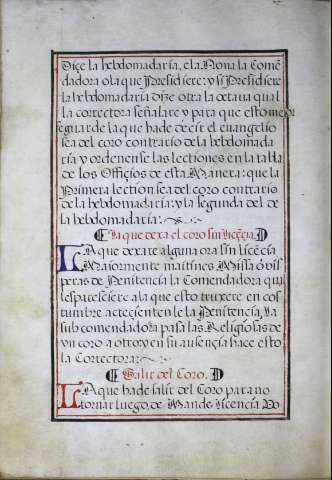 Dize la hebdomadaria, ela Nona la Comē
dadora o la que Presidiere: y si Presidiere
la hebdomadaria dize otra la octava qual
la correctora señalare y para que esto mejor
se guarde la que ha de decir el evangelio
sea del coro contrario de la hebdomada
ria y ordenense las lectiones en la tabla
de los Officios de esta Manera: que la
Primera lection sea del coro contrario
de la hebdomadaria: y la segunda del de
la hebdomadaria:
La que dexa el coro sin licēcia.
La que dexare alguna ora sin licēcia
Maiormente maitines Missa o vis
peras de Penitencia la Comendadora qual
les paresciere a la que esto truxere en cos
tumbre acrecientenle la Penitencia, La
sub comendadora pasa las Religiosas de
un coro a otro y en su ausencia hace esto
la Correctora:
Salir del Coro.
La que ha de salir del Coro para no
tornar luego, de Mande licencia Po